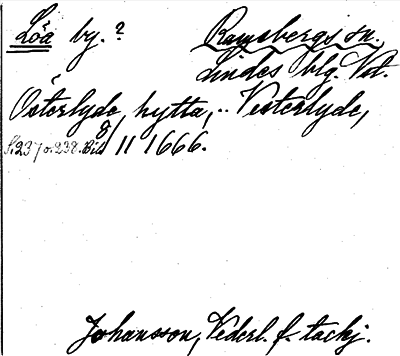 Löa by.? Ramsbergs sn.
Lindes blg. Vstm.
Österlyde, hytta, .. Vesterlyde,
S.237 o. 238. Bil 8/11 1666.
Johansson, Vederl. f. tackj.